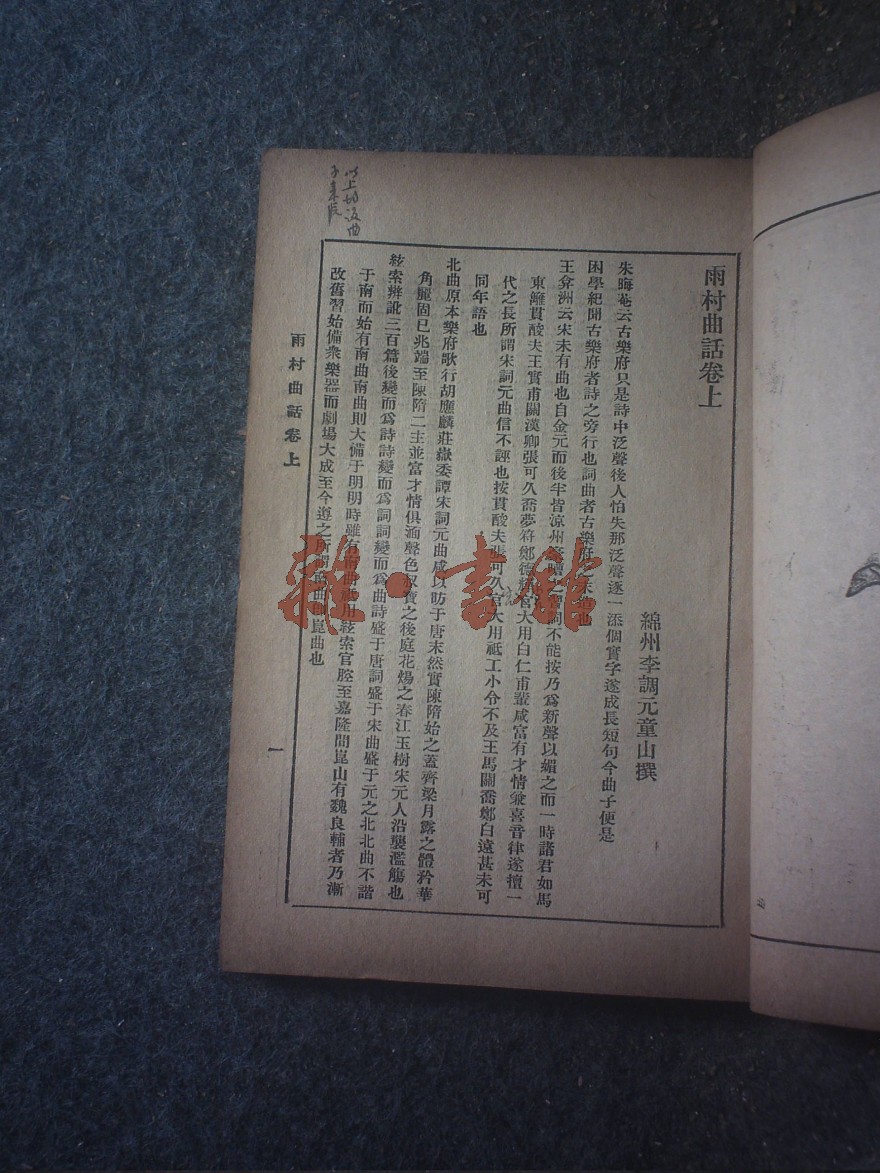 雨村曲話卷上
綿州李調元童山撰
朱晦菴云古樂府只是詩中泛聲後人怕失那泛聲逐一添個實字遂成長短句今曲子便是
困學紀聞古樂府者詩之旁行也詞曲者古樂府之末造也
王弇洲云宋未有曲也自金元而後半皆涼州豪嘈之習詞不能按乃爲新聲以媚之而一時諸君如馬
東籬貫酸夫王實甫關漢卿張可久喬夢符鄭德輝宮大用白仁甫輩咸富有才情兼喜音律遂擅一
代之長所謂宋詞元曲信不誣也按貫酸夫張可久宮大用祗工小令不及王馬關喬鄭白遠甚未可
同年語也
北曲原本樂府歌行胡應麟莊嶽委譚宋詞元曲咸以昉于唐末然實陳隋始之蓋齊梁月露之體矜華
角麗固已兆端至陳隋二主並富才情俱湎聲色叔寶之後庭花煬之春江玉樹宋元人沿襲濫觴也
絃索辨訛三百篇後變而爲詩詩變而爲詞詞變而爲曲詩盛于唐詞盛于宋曲盛于元之北北曲不諧
于南而始有南曲南曲則大備于明明時雖有南曲祗用絃索官腔至嘉隆間崑山有魏良輔者乃漸
改舊習始備衆樂器而劇場大成至今遵之所謂南曲即崑曲也
雨村曲話卷上
一
雜·書館